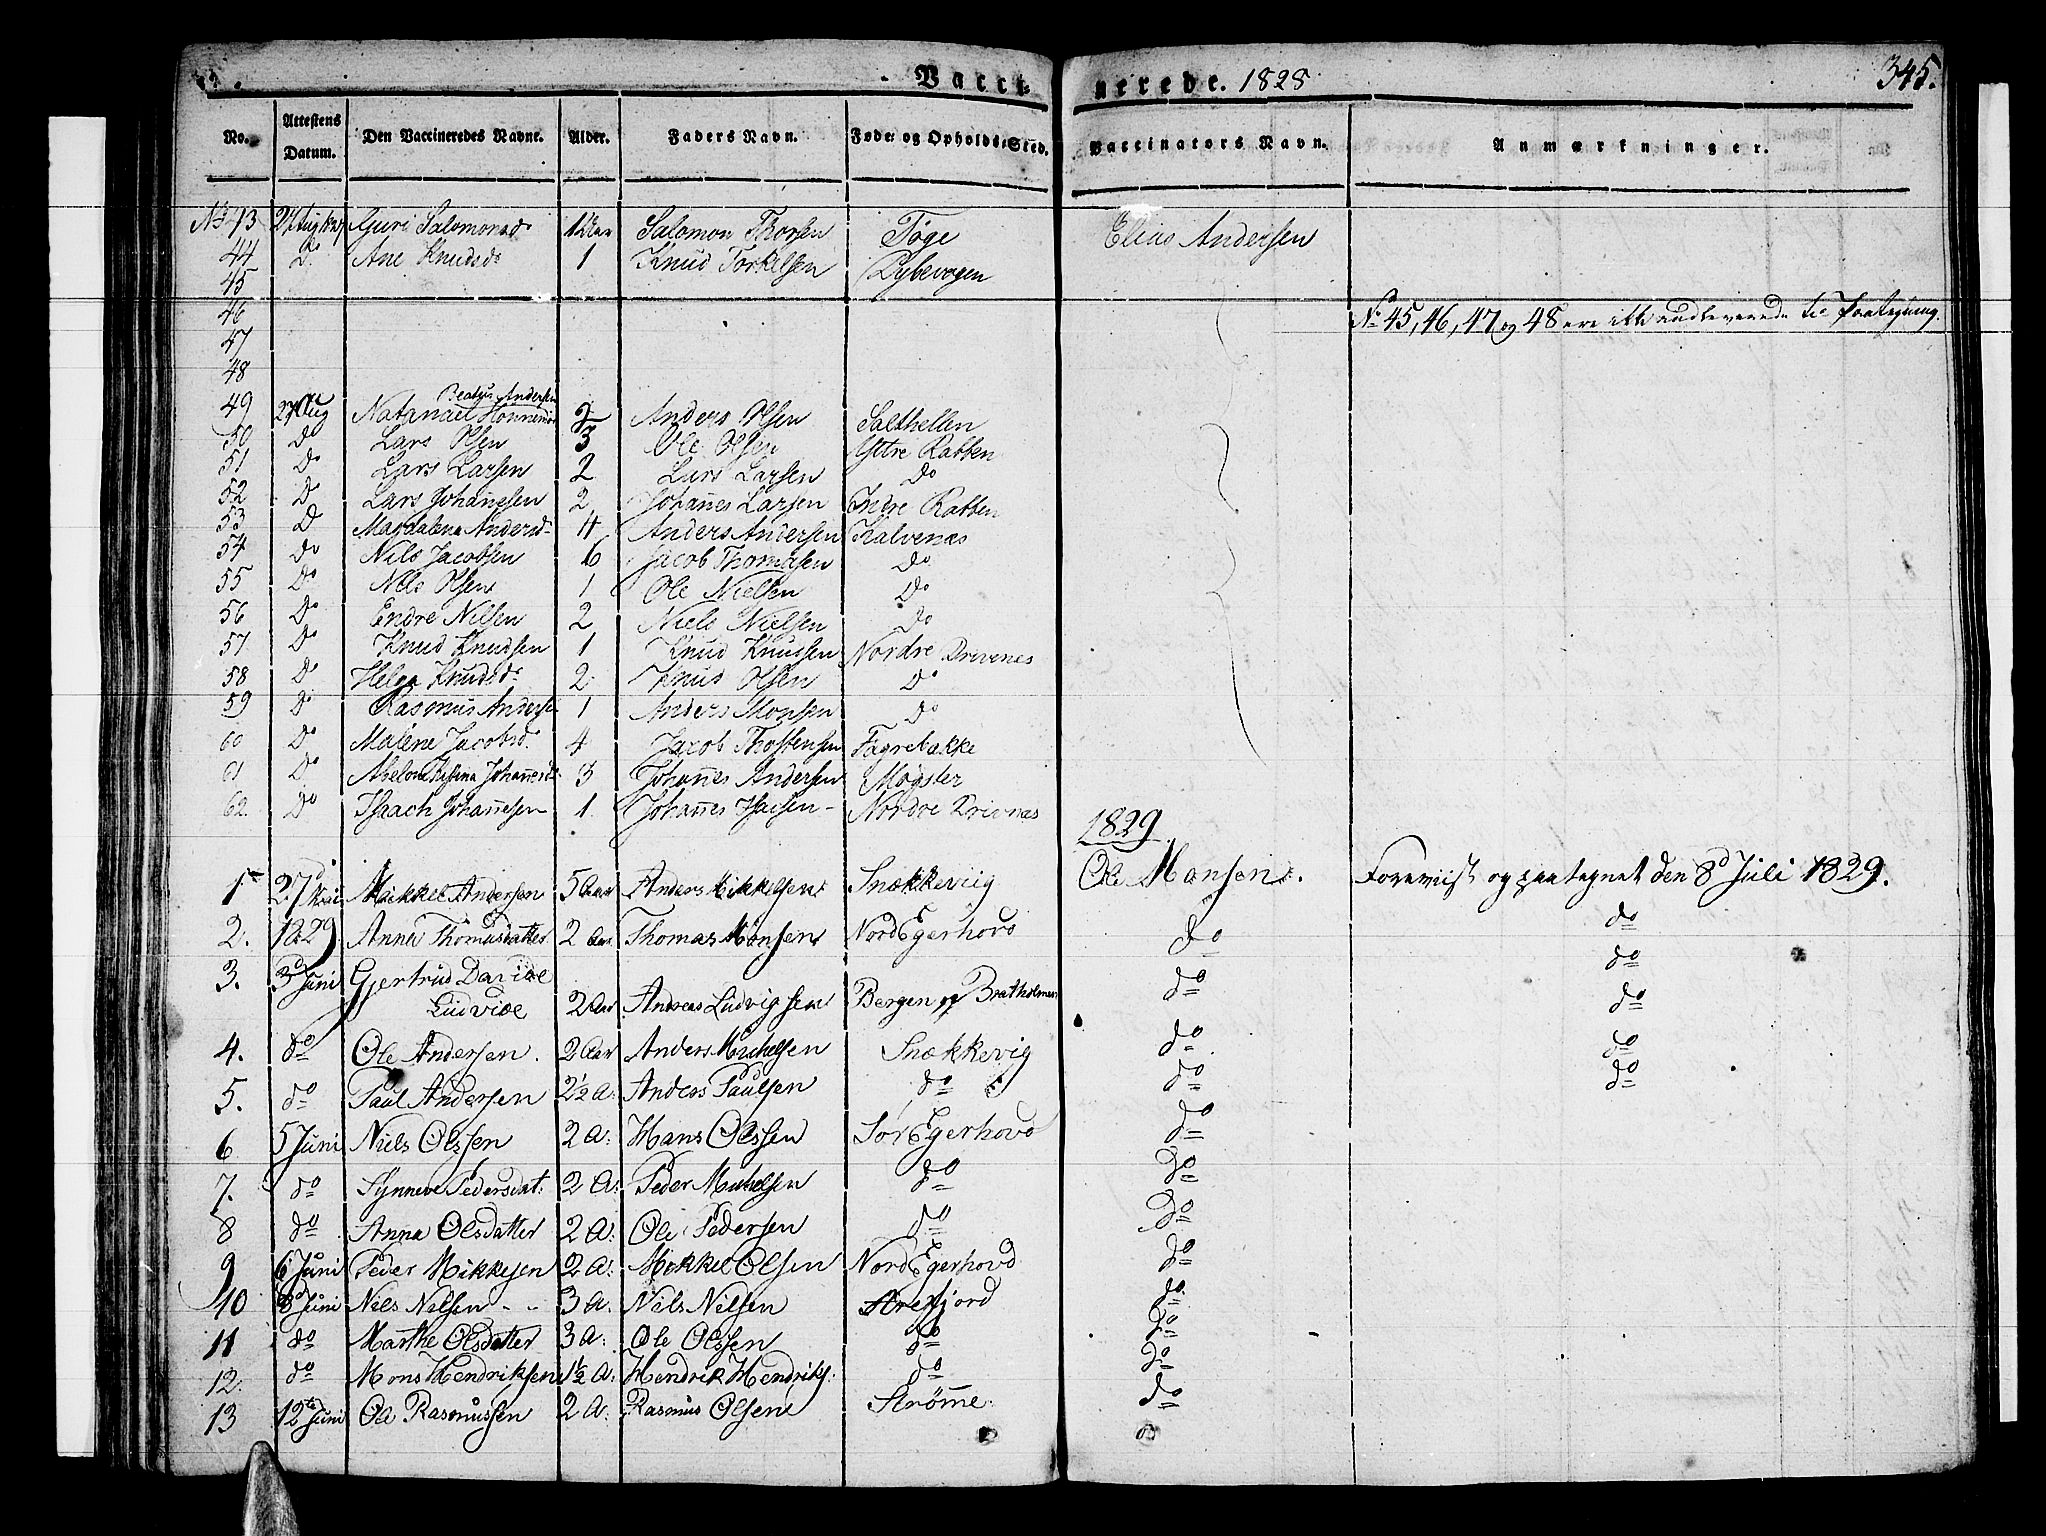 Vacci- nerede. 1828 345.
No. Attestens Datum. Den Vaccineredes Navne. Alder. Faders Navn. Føde- og Opholds-Sted. Vaccinators Navn. Anmærkninger.
No 43 Guri Salomonsd. Salomon Thorsen Tøge Elias Andersen
44 Do Ane Knudsdr 1 Knud Torkelsen Dybevogen
45
46 No 45, 46, 47 og 48 ere ikke udleverede til Paategning.
47
48
Andersen
49 27 Aug Natanael 2 Anders Olsen Salthellen
50 Do Lars Olsen 3 Ole Olsen Yttre Rabben
51 Do Lars Larsen 2 Lars Larsen Do
52 Do Lars Johannesen 2 Johannes Larsen Indre Rabben
53 Do Magdalena Andersd. 4 Anders Andersen Kalvenæs
54 Do Nils Jacobsen 6 Jacob Thomasen Do
55 Do Nils Olsen 1 Ole Nielsen Do
56 Do Endre Nilsen 2 Niels Nielsen Do
57 Do Knud Knudsen 1 Knud Knudsen Nordre Drivenes
58 Do Helga Knudsdr 2 Knud Olsen Do
59 Do Rasmus Andersen 1 Anders Monsen Do
60 Do Malene Jacobsd. 4 Jacob Thostensen Fagrebakke
61 Do Johannesd. 3 Johannes Andersen Møgster
62. Do Isaach Johannesen 1. Johannes Isacsen Nordre Drivnæs
1829
1 27 Mai Mikkel Andersen 5 Aar Anders Mikkelsen Snækkeviig Ole Monsen. Foreviist og paategnet den 8de Juli 1829.
2. 1829 Anna Thomasdatter 2 Aar Thomas Monsen Nord Egerhovd do do
3. 3d Juni Gjertrud Davide do
Ludvide 2 Aar Andreas Ludvigsen Bergen og Bratholmen do do
4. do Ole Andersen. 2 Aar Anders Michelsen Snækkevig do do
5. do Paul Andersen 2½ A: Anders Paulsen do do do
6 5 Juni Niels Olssen 2 A: Hans Olssen Sør Egerhovd do
7. do Synneve Pedersdat: 2 A: Peder Michelsen do do
8 do Anna Olsdatter 2 A: Ole Pedersen do do
9 6 Juni Peder Mikkelsen 2 A: Mikkel Olsen Nord Egerhovd do
10 8 Juni Nils Nilsen 3 A: Nils Nilsen do
11 do Marthe Olsdatter 3 A: Ole Olssen do do
12. do Mons Hendriksen 1½ A: Hendrik Hendriks: do do
13 12te Juni Ole Rasmussen 2 A: Rasmus Olsen Strømme. do